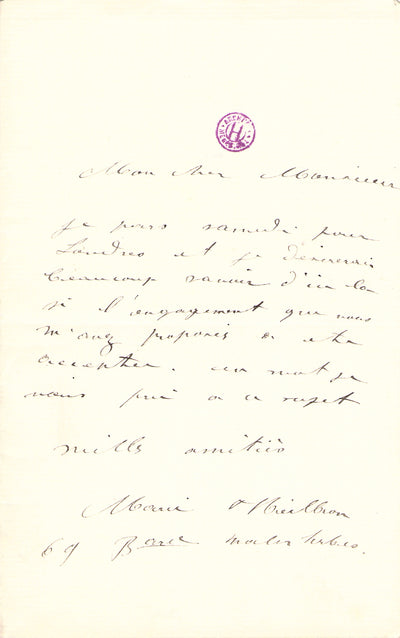 Mon cher Monsieur
je pars samedi pour
Londres et je désirerais
beaucoup savoir d'ici la
si l'engagement que vous
m'avez proposé a été
accepter. un mot je
vous prie a ce sujet
mille amitiés
Marie Heilbron
69 Malesherbes.